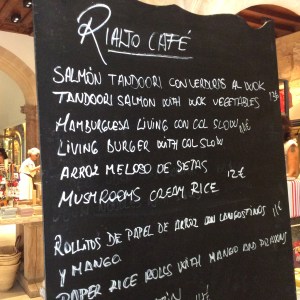 RIALTO CAFÉ
SALMÓN TANDOORI CON VERDURAS AL WOK
TANDOORI SALMON WITH WOK VEGETABLES
HAMBURGUESA LIVING CON COL SLOW
LIVING BURGER WITH COL SLOW
ARROZ MELOSO DE SETAS
MUSHROOMS CREAM RICE 12€
ROLLITOS DE PAPEL DE ARROZ CON LANGOSTINOS 11€
Y MANGO
PAPER RICE ROLLS WITH MANGO AND PRAWNS